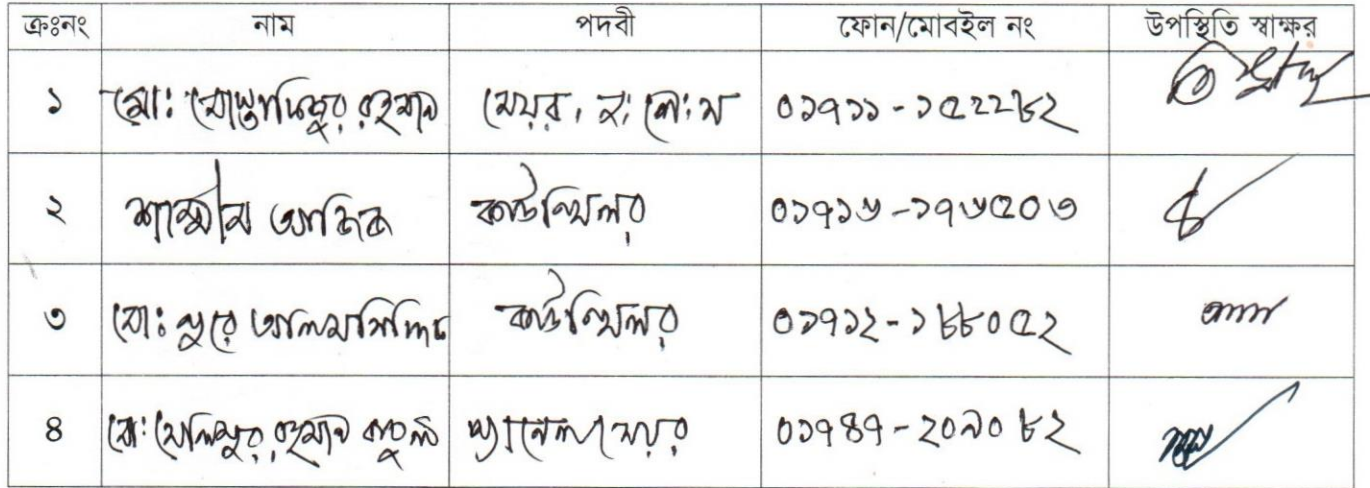 ক্রঃনং নাম পদবী ফোন/মোবইল নং উপস্থিতি স্বাক্ষর
১ মোঃ মোস্তাফিজুর রহমান মেয়র, ০১৭১১-১৫২২৮২
২ শামীম আজিজ কাউন্সিলর ০১৭১৬-১৭৬৫২০৩
৩ মোঃ নুরে কাউন্সিলর ০১৭১২-১৮৮০৫২
৪ মোঃ খলিলুর রহমান বাবুল প্যানেল মেয়র ০১৭৪৭-২০৯০৮২